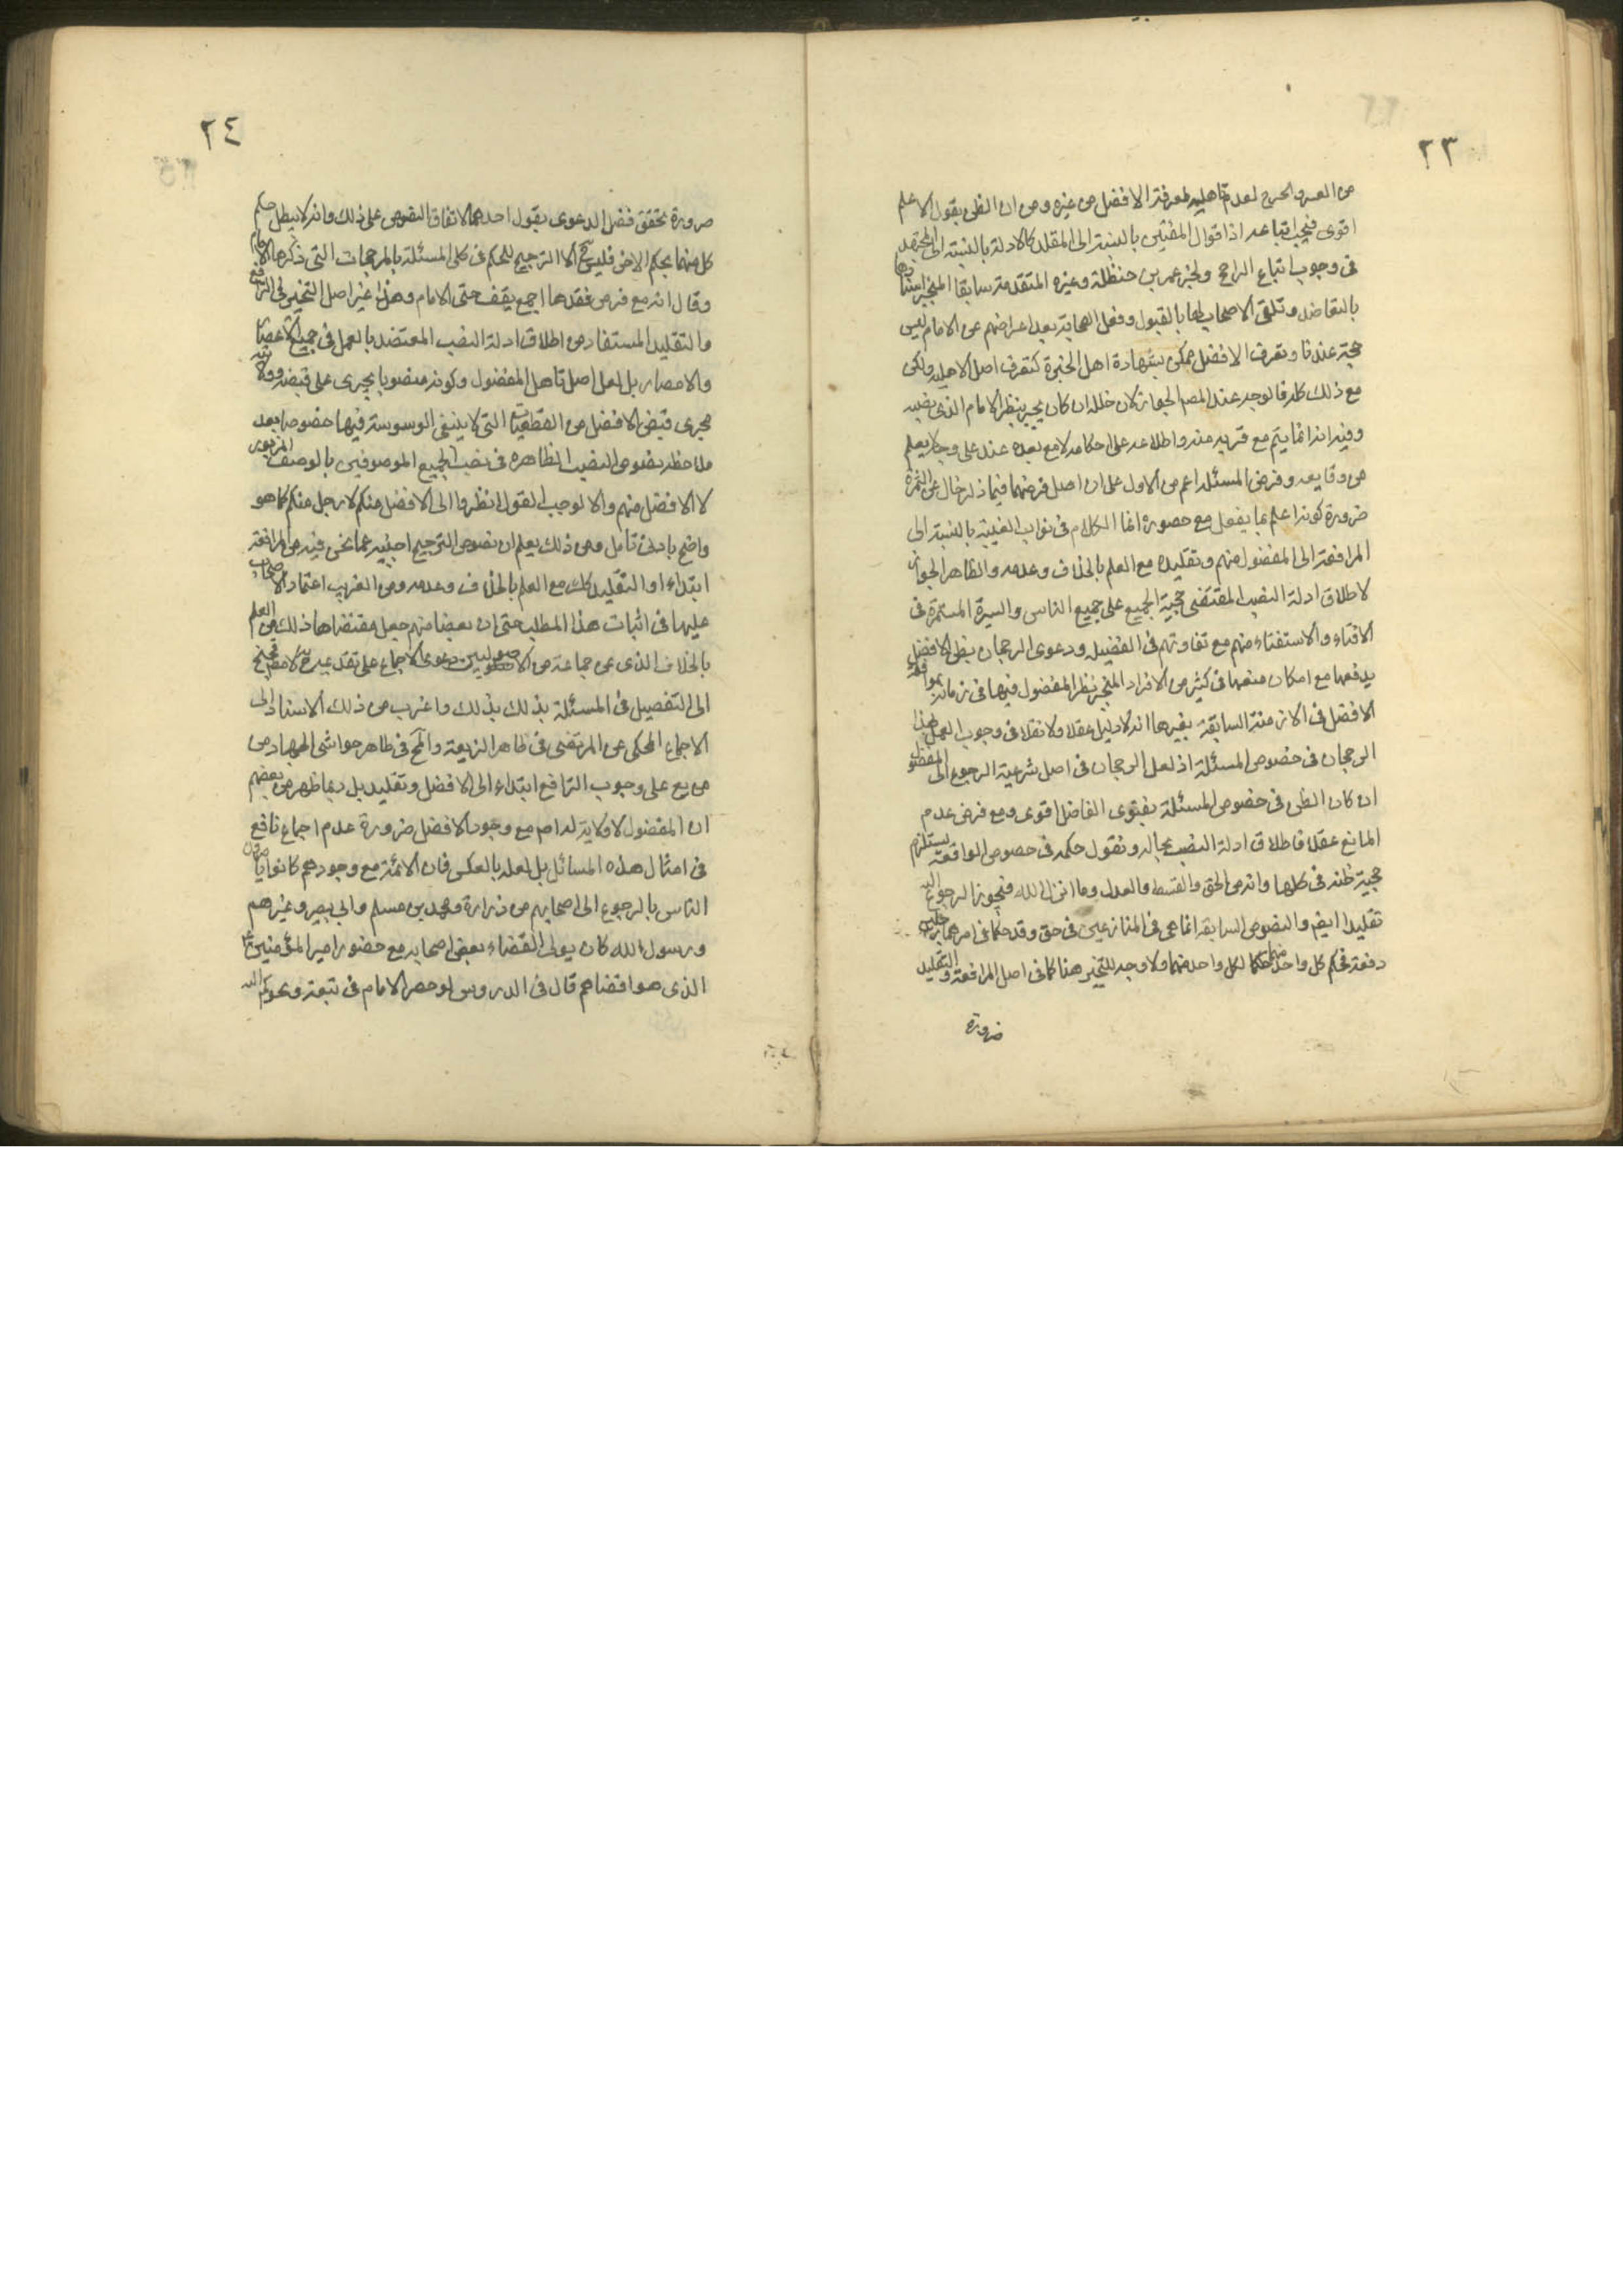 ٢٣
من العسر والحرج لعدم تاهليه لمعرفة الافضل من غيره ومن ان الظن بقول الاعلم
اقوى فيجب اتباعه اذ اقوال المفتين بالنسبة الى المقلد كالادلة بالنسبة الى المجتهد
فى وجوب اتباع الراجح ولخبر عمر بن حنظلة وغيره المتقدمة سابقا المنجبر اسنادها
بالتعاضد وتلقى الاصحاب لها بالقبول وفعل الصحابة بعد اعراضهم عن الامام ليس
حجة عندنا وتعرف الافضل ممكن بشهادة اهل الخبرة كتعرف اصل الاهليه ولكن
مع ذلك كله فالوجه عند المصم الجواز لان خلله ان كان يجبر بنظر الامام الذى نصبه
وفيه انه انما يتم مع قربه منه واطلاعه على احكامه لا مع بعده عنه على وجه لا يعلم
من وقايعه وفرض المسئلة اعم من الاول على ان اصل فرضهما فيما ذكر خال عن الثمرة
ضرورة كونه اعلم بما يفعل مع حضوره انما الكلام فى نواب الغيبة بالنسبة الى
المرافعة الى المفضول منهم وتقليده مع العلم بالخلاف وعدمه والظاهر الجواز
لاطلاق ادلة النصب المقتضى حجية الجميع على جميع الناس والسيرة المستمرة فى
الافتاء والاستفتاء منهم مع تفاوتهم فى الفضيلة ودعوى الرجحان بظن الافضل
يدفعها مع امكان منعها فى كثير من الافراد المنجبر نظر المفضول فيها فى زمانه بموافقة
الافضل فى الازمنة السابقة بغيرها انه لا دليل عقلا ولا نقلا فى وجوب العمل بهذا
الرجحان فى خصوص المسئلة اذ لعل الرجحان فى اصل شرعية الرجوع الى المفضول
ان كان الظن فى خصوص المسئلة بفتوى الفاضل اقوى ومع فرض عدم
المانع عقلا فاطلاق ادلة النصب بحاله ونفوذ حكمه فى خصوص الواقعة يستلزم
حجية ظنه فى كلها وانه من الحق والقسط والعدل وما انزل الله فيجوز الرجوع اليه
تقليدا ايضم والنصوص السابقة انما هى فى المتنازعين فى حق وقد حكما فى امرهما رجلين
دفعة فحكم كل واحد منهما حكما لكل واحد منهما ولا وجه للتخير هنا كما فى اصل المرافعة والتقليد
ضرورة
٢٤
ضرورة تحقق فصل الدعوى بقول احدهما لاتفاق النصوص على ذلك وانه لا يبطل حكم
كل منهما بحكم الاخر فليس ح الا الترجيح للحكم فى كلى المسئلة بالمرجحات التى ذكرها الامام
وقال انه مع فرض فقدها اجمع يقف حتى الامام وهذا غير اصل التخير فى الترافع
والتقليد المستفاد من اطلاق ادلة النصب المعتضد بالعمل فى جميع الاعصار
والامصار بل لعل اصل تاهل المفضول وكونه منصوبا يجرى على قبضه وولايته
مجرى قبض الافضل من القطعيات التى لا ينبغى الوسوسة فيها خصوصا بعد
ملاحظة نصوص النصب الظاهره فى نصب الجميع الموصوفين بالوصف المزبور
لا الافضل منهم والا لوجب القول انظروا الى الافضل منكم لا رجل منكم كما هو
واضح بادنى تامل ومن ذلك يعلم ان نصوص الترجيح اجنبيه عما نحن فيه من المرافعة
ابتداء او التقليد كك مع العلم بالخلاف وعدمه ومن الغريب اعتماد الاصحاب
عليها فى اثبات هذا المطلب حتى ان بعضا منهم جعل مقتضاها ذلك مع العلم
بالخلاف الذى عن جماعة من الاصوليين دعوى الاجماع على تقديمه ح لا مطلقا فجنح
الى التفصيل فى المسئلة بذلك واغرب من ذلك الاستناد الى
الاجماع المحكى عن المرتضى فى ظاهر الذريعة والمح فى ظاهر حواشى الجهاد من
من يع على وجوب الترافع ابتداء الى الافضل وتقليده بل ربما ظهر من بعضهم
ان المفضول لا ولاية له اصم مع وجود الافضل ضرورة عدم اجماع نافع
فى امثال هذه المسائل بل لعله بالعكس فان الائمة مع وجودهم كانوا يامرون
الناس بالرجوع الى اصحابهم من زرارة ومحمد بن مسلم وابى بصير وغيرهم
ورسول الله كان يولى القضاء بعض اصحابه مع حضور امير المؤمنين ع
الذى هو اقضاهم قال فى الدروس لو حضر الامام فى بقعة وتحوكم اليه